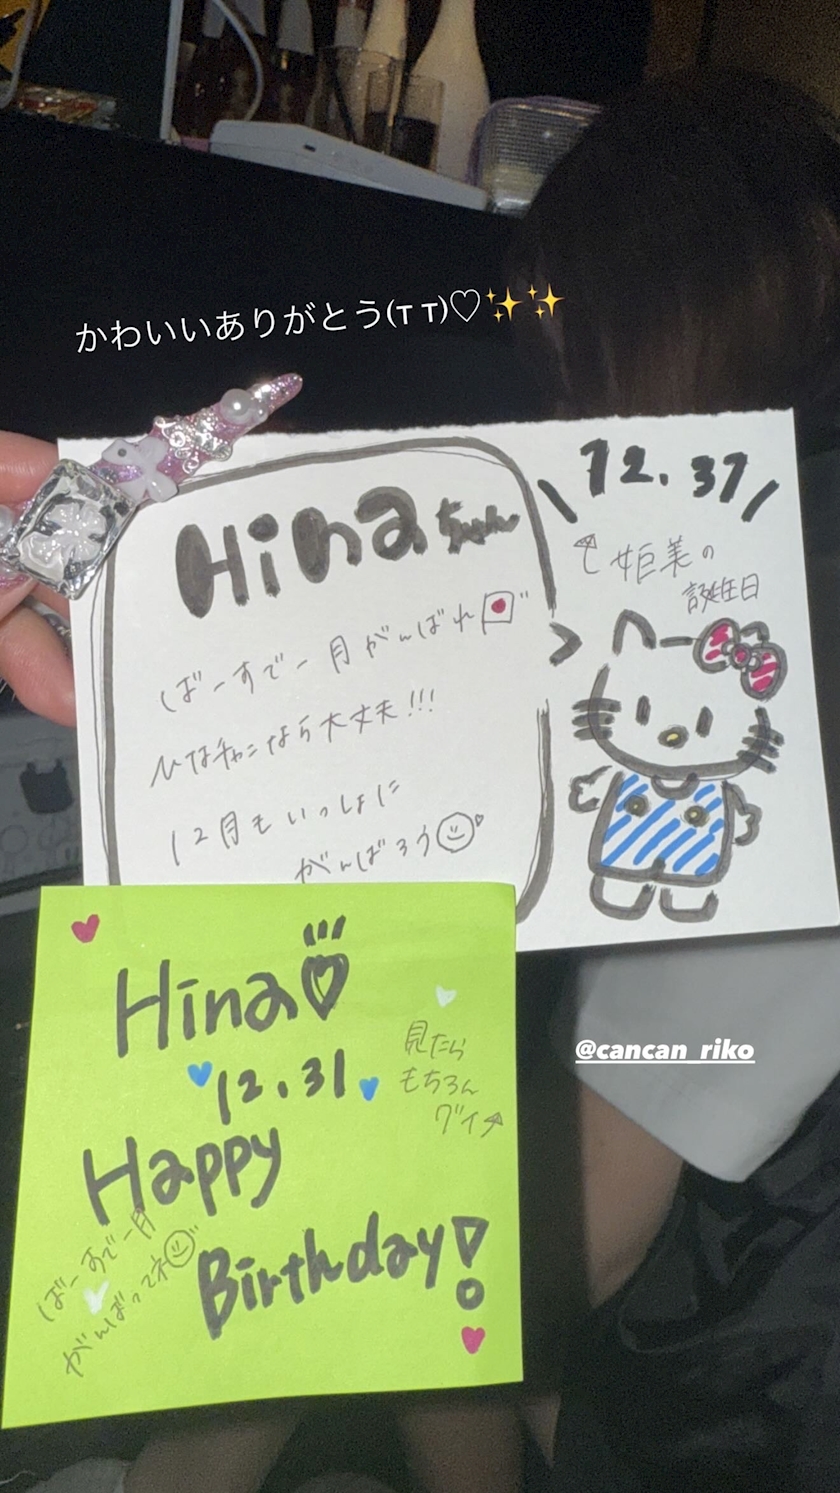 かわいいありがとう(T T)♡✨✨
Hinaちゃん
ばーすでー月がんばれ
ひなちゃんなら大丈夫!!!
12月もいっしょに
がんばろう
12.31
姫美の
誕生日
@cancan_riko
Hina♡
12.31
Happy
Birthday!
見たら
もちろん
グイ↗
ばーすでー月
がんばってネ